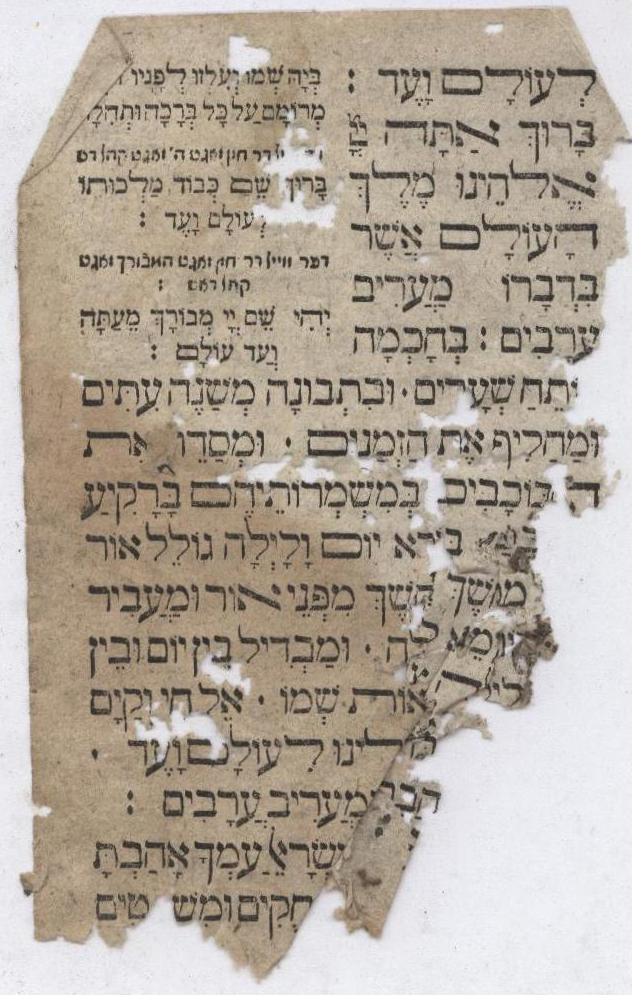 לְעוֹלָם וָעֶד :
בָּרוּךְ אַתָּה
אֱלֹהֵינוּ מֶלֶךְ
הָעוֹלָם אֲשֶׁר
בִּדְבָרוֹ מַעֲרִיב
עֲרָבִים : בְּחָכְמָה
בְּיָהּ שְׁמוֹ וְעִלְזוּ לְפָנָיו
מְרוֹמָם עַל כָּל בְּרָכָה וּתְהִלָּה
דר חזן זאגט ה' זאגט קהל דס
בָּרוּךְ שֵׁם כְּבוֹד מַלְכוּתוֹ
עוֹלָם וָעֶד :
דפר ווייל דר חזן זאגט המבורך זאגט
קהל דאס :
יְהִי שֵׁם יְיָ מְבוֹרָךְ מֵעַתָּה
וְעַד עוֹלָם :
שְׁעָרִים · וּבִתְבוּנָה מְשַׁנֶּה עִתִּים
וּמַחֲלִיף אֶת הַזְּמַנִּים · וּמְסַדֵּר אֶת
כּוֹכָבִים בְּמִשְׁמְרוֹתֵיהֶם בָּרָקִיעַ
בּוֹרֵא יוֹם וָלָיְלָה גּוֹלֵל אוֹר
חֹשֶׁךְ מִפְּנֵי אוֹר וּמַעֲבִיר
יוֹם · וּמַבְדִּיל בֵּין יוֹם וּבֵין
שְׁמוֹ · אֵל חַי וְקַיָּם
לְעוֹלָם וָעֶד ·
מַעֲרִיב עֲרָבִים :
יִשְׂרָאֵל עַמְּךָ אָהַבְתָּ
חֻקִּים